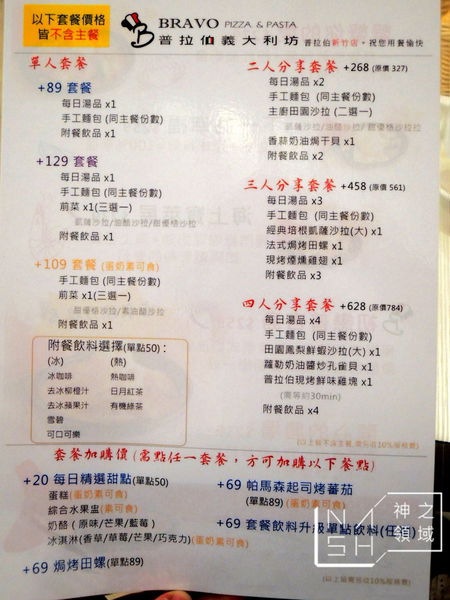 以下套餐價格
皆不含主餐
BRAVO PIZZA & PASTA
普拉伯義大利坊 普拉伯新竹店・祝您用餐愉快
單人套餐
+89 套餐
每日湯品 x1
手工麵包 (同主餐份數)
附餐飲品 x1
+129 套餐
每日湯品 x1
手工麵包 (同主餐份數)
前菜 x1(三選一)
凱薩沙拉/油醋沙拉/甜優格沙拉
附餐飲品 x1
+109 套餐 (蛋奶素可食)
手工麵包 (同主餐份數)
前菜 x1(三選一)
甜優格沙拉/素油醋沙拉
附餐飲品 x1
附餐飲料選擇(單點50):
(冰) (熱)
冰咖啡 熱咖啡
去冰柳橙汁 日月紅茶
去冰蘋果汁 有機綠茶
雪碧
可口可樂
二人分享套餐 +268 (原價 327)
每日湯品 x2
手工麵包 (同主餐份數)
主廚田園沙拉 (二選一)
凱薩沙拉/油醋沙拉/甜優格沙拉
香蒜奶油焗干貝 x1
附餐飲品 x2
三人分享套餐 +458 (原價 561)
每日湯品 x3
手工麵包 (同主餐份數)
經典培根凱薩沙拉(大) x1
法式焗烤田螺 x1
現烤煙燻雞翅 x1
附餐飲品 x3
四人分享套餐 +628 (原價784)
每日湯品 x4
手工麵包 (同主餐份數)
田園鳳梨鮮蝦沙拉(大) x1
羅勒奶油醬炒孔雀貝 x1
普拉伯現烤鮮味雞塊 x1
(需等約30min)
附餐飲品 x4
(以上餐不含主餐,需另收10%服務費)
套餐加購價 (需點任一套餐,方可加購以下餐點)
+20 每日精選甜點(單點50)
蛋糕(蛋奶素可食)
綜合水果盅(素可食)
奶酪 ( 原味/芒果/藍莓 )
冰淇淋(香草/草莓/芒果/巧克力)(蛋奶素可食)
+69 焗烤田螺(單點89)
+69 帕馬森起司烤蕃茄
(單點89) (蛋奶素可食)
+69 套餐飲料升級單點飲料(任選)
(以上需另收10%服務費)
神之領域